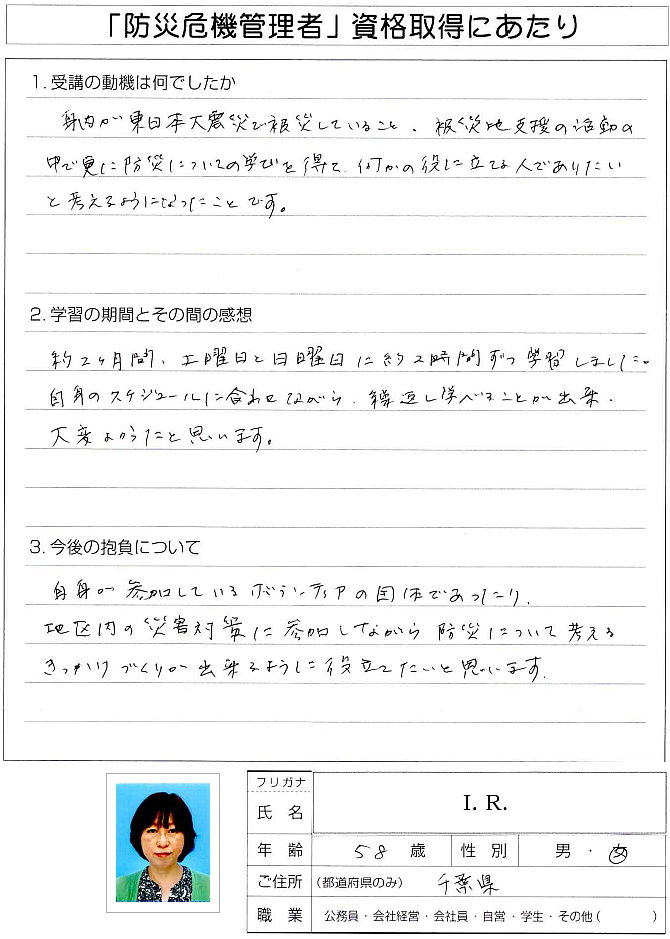 「防災危機管理者」資格取得にあたり
1. 受講の動機は何でしたか
身内が東日本大震災で被災していること、被災地支援の活動の
中で更に防災についての学びを得て、何かの役に立てる人でありたい
と考えるようになったことです。
2. 学習の期間とその間の感想
約2ヶ月間、土曜日と日曜日に約2時間ずつ学習しました。
自身のスケジュールに合わせながら、繰返し学べることが出来、
大変よかったと思います。
3. 今後の抱負について
自身が参加しているボランティアの団体であったり、
地区内の災害対策に参加しながら防災について考える
きっかけづくりが出来るように役立てたいと思います。
フリガナ
氏 名 I. R.
年 齢 58 歳 性 別 男 ・ 女
ご住所 (都道府県のみ) 千葉県
職 業 公務員・会社経営・会社員・自営・学生・その他( )